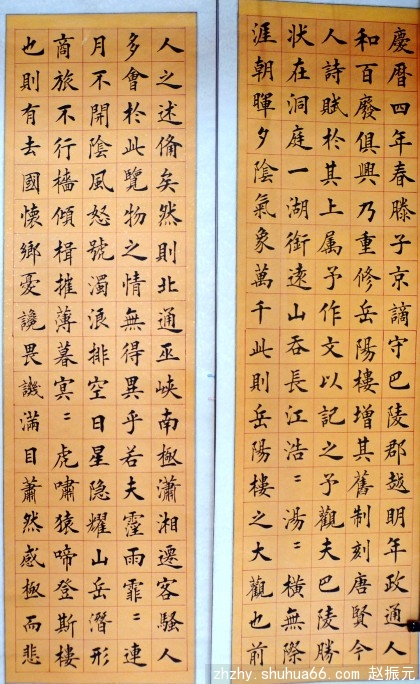 慶曆四年春滕子京謫守巴陵郡越明年政通人
和百廢俱興乃重修岳陽樓增其舊制刻唐賢今
人詩賦於其上属予作文以記之予觀夫巴陵勝
状在洞庭一湖銜遠山吞長江浩〻湯〻橫無際
涯朝暉夕陰氣象萬千此則岳陽樓之大觀也前
人之述俻矣然則北通巫峽南極瀟湘遷客騷人
多會於此覽物之情無得異乎若夫霪雨霏〻連
月不開陰風怒號濁浪排空日星隐耀山岳潛形
商旅不行檣傾楫摧薄暮冥〻虎嘯猿啼登斯樓
也則有去國懷鄉憂讒畏譏滿目蕭然感極而悲
zhzhy.shuhua66.com 赵振元